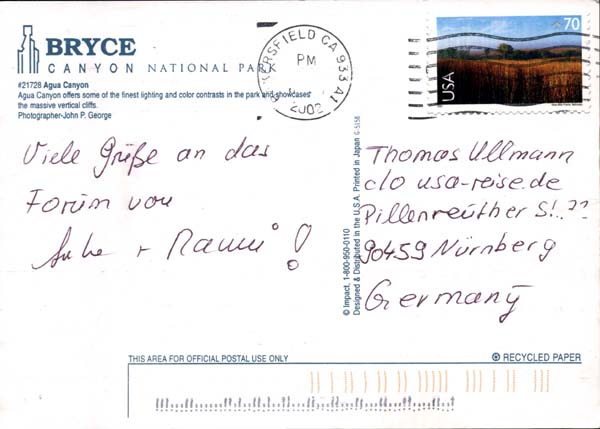 BRYCE
CANYON NATIONAL PARK
#21728 Agua Canyon
Agua Canyon offers some of the finest lighting and color contrasts in the park and showcases
the massive vertical cliffs.
Photographer-John P. George
BAKERSFIELD CA 933 A1
PM
2002
70
USA
Viele Grüße an das
Forum von
Anke +
!
© Impact, 1-800-950-0110
Designed & Distributed in the U.S.A. Printed in Japan G-5158
Thomas Ullmann
c/o usa-reise.de
Pillenreuther St.
90459 Nürnberg
Germany
THIS AREA FOR OFFICIAL POSTAL USE ONLY
RECYCLED PAPER